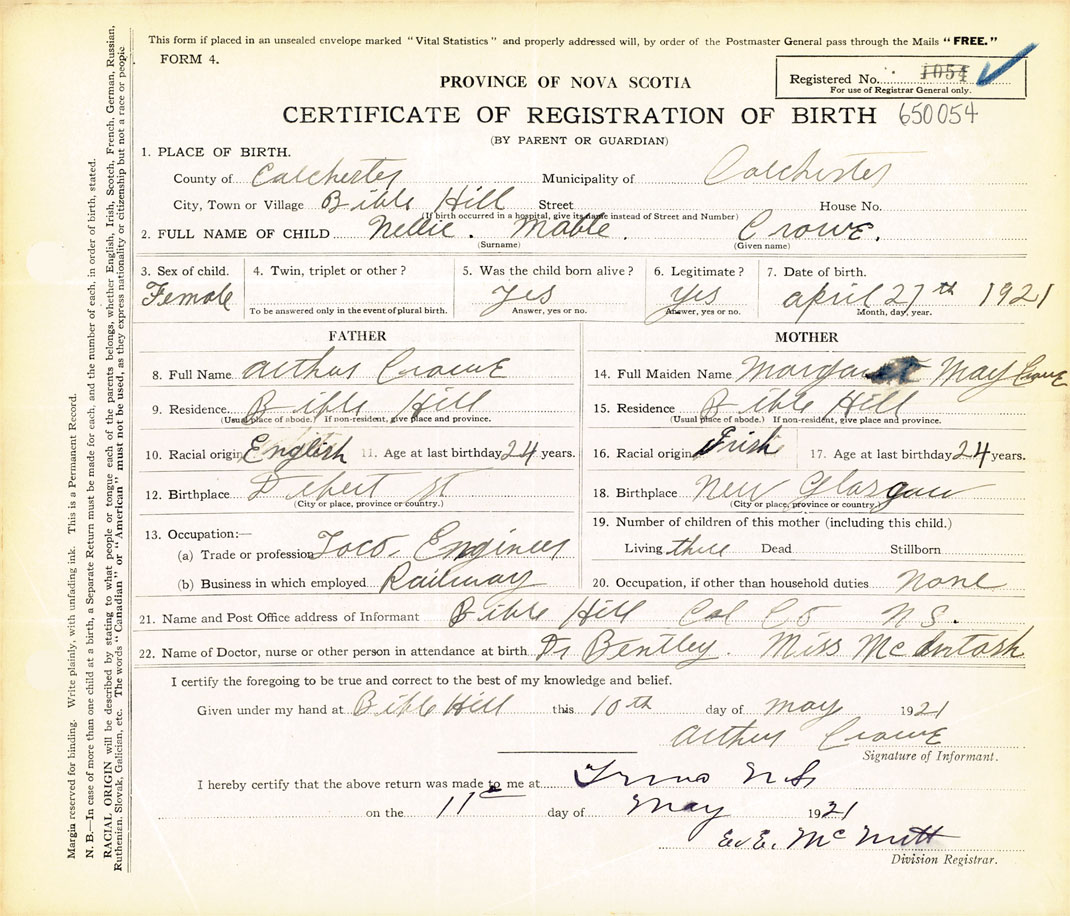 This form if placed in an unsealed envelope marked "Vital Statistics" and properly addressed will, by order of the Postmaster General pass through the Mails "FREE."
FORM 4.
Registered No. 1054
For use of Registrar General only.
PROVINCE OF NOVA SCOTIA
CERTIFICATE OF REGISTRATION OF BIRTH 650054
(BY PARENT OR GUARDIAN)
1. PLACE OF BIRTH.
County of Colchester Municipality of Colchester
City, Town or Village Bible Hill Street House No.
(If birth occurred in a hospital, give its name instead of Street and Number)
2. FULL NAME OF CHILD Nellie. Mable. Crowe.
(Surname) (Given name)
3. Sex of child. 4. Twin, triplet or other? 5. Was the child born alive? 6. Legitimate? 7. Date of birth.
Female Yes Yes April 27th 1921
To be answered only in the event of plural birth. Answer, yes or no. Answer, yes or no. Month, day, year.
FATHER
8. Full Name Arthur Crowe
9. Residence Bible Hill
(Usual place of abode.) If non-resident, give place and province.
10. Racial origin English 11. Age at last birthday 24 years.
12. Birthplace Debert
(City or place, province or country.)
13. Occupation:—
(a) Trade or profession Loco. Engineer
(b) Business in which employed Railway
MOTHER
14. Full Maiden Name Margaret May Crowe
15. Residence Bible Hill
(Usual place of abode.) If non-resident, give place and province.
16. Racial origin Irish 17. Age at last birthday 24 years.
18. Birthplace New Glasgow
(City or place, province or country.)
19. Number of children of this mother (including this child.)
Living three Dead Stillborn
20. Occupation, if other than household duties None
21. Name and Post Office address of Informant Bible Hill Col Co N S.
22. Name of Doctor, nurse or other person in attendance at birth. Dr Bentley. Miss McIntosh
I certify the foregoing to be true and correct to the best of my knowledge and belief.
Given under my hand at Bible Hill this 10th day of May 1921
Arthur Crowe
Signature of Informant.
I hereby certify that the above return was made to me at Truro N.S.
on the 11 day of May 1921
E. E. McNutt
Division Registrar.
Margin reserved for binding. Write plainly, with unfading ink. This is a Permanent Record.
N. B.—In case of more than one child at a birth, a Separate Return must be made for each, and the number of each, in order of birth, stated.
RACIAL ORIGIN will be described by stating to what people or tongue each of the parents belongs, whether English, Irish, Scotch, French, German, Russian,
Ruthenian, Slovak, Galician, etc. The words "Canadian" or "American" must not be used, as they express nationality or citizenship but not a race or people.